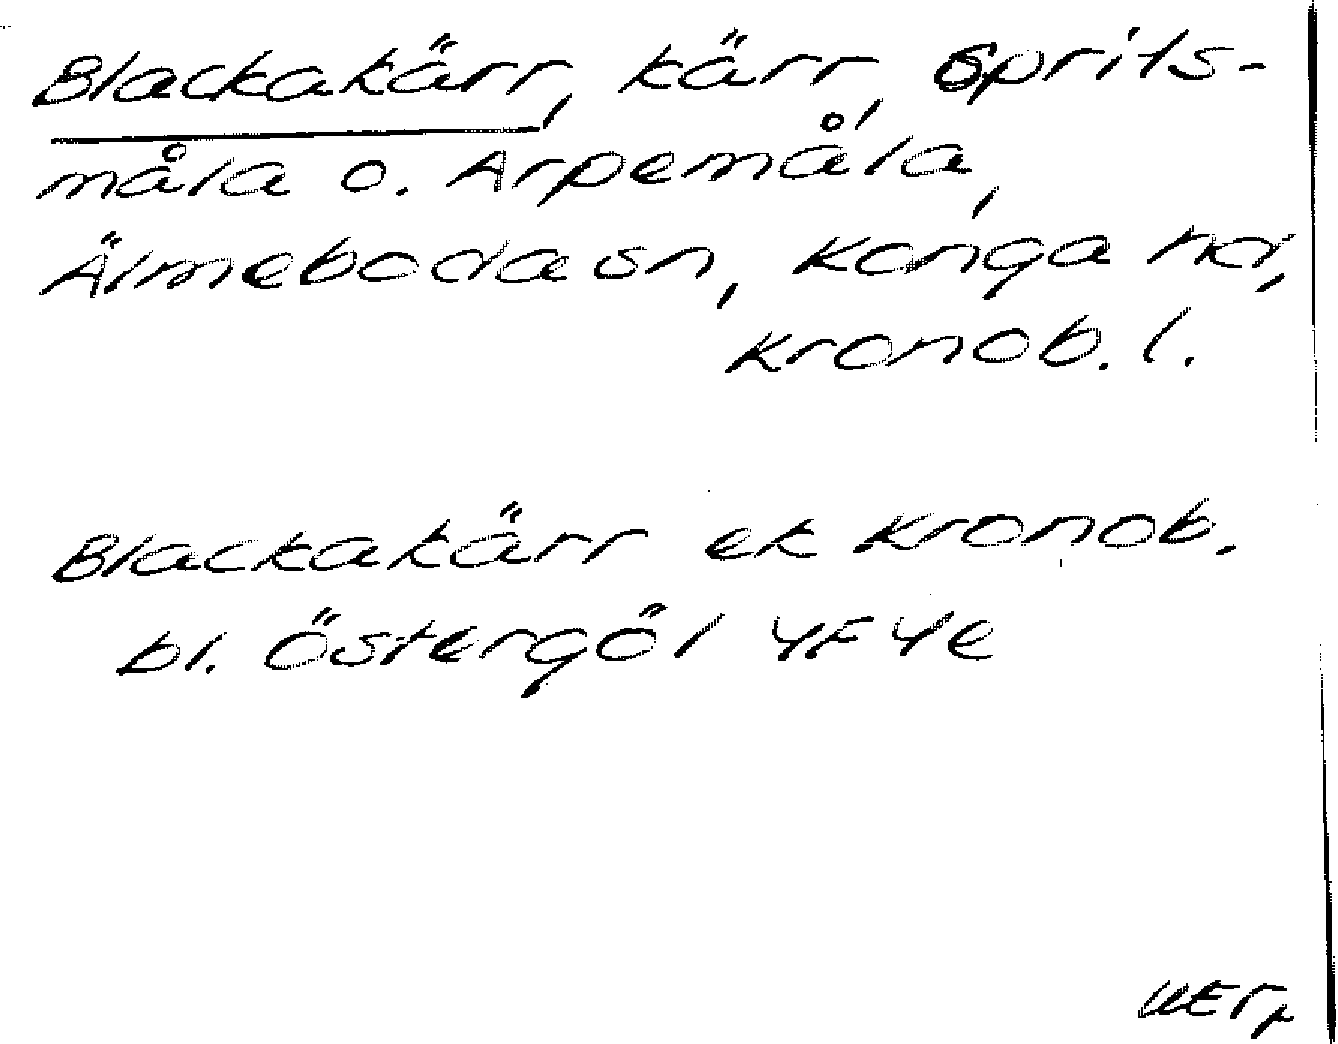 Blackakärr, kärr, Sprits-
måla o. Arpemåla,
Älmeboda sn, Konga hd,
Kronob. l.
Blackakärr ek Kronob.
bl. Östergöl 4F4e